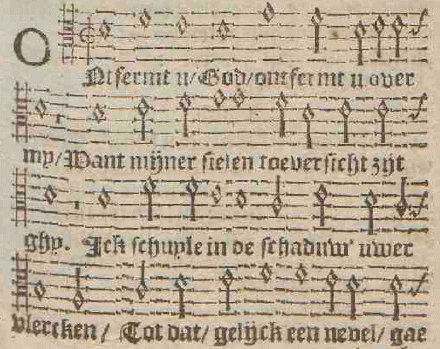 ONtfermt u/God/ontfermt u over
my/Want mijner sielen toeversicht zijt
ghy. Ick schuyle in de schaduw' uwer
vlercken / Tot dat/ gelijck een nevel/ gae